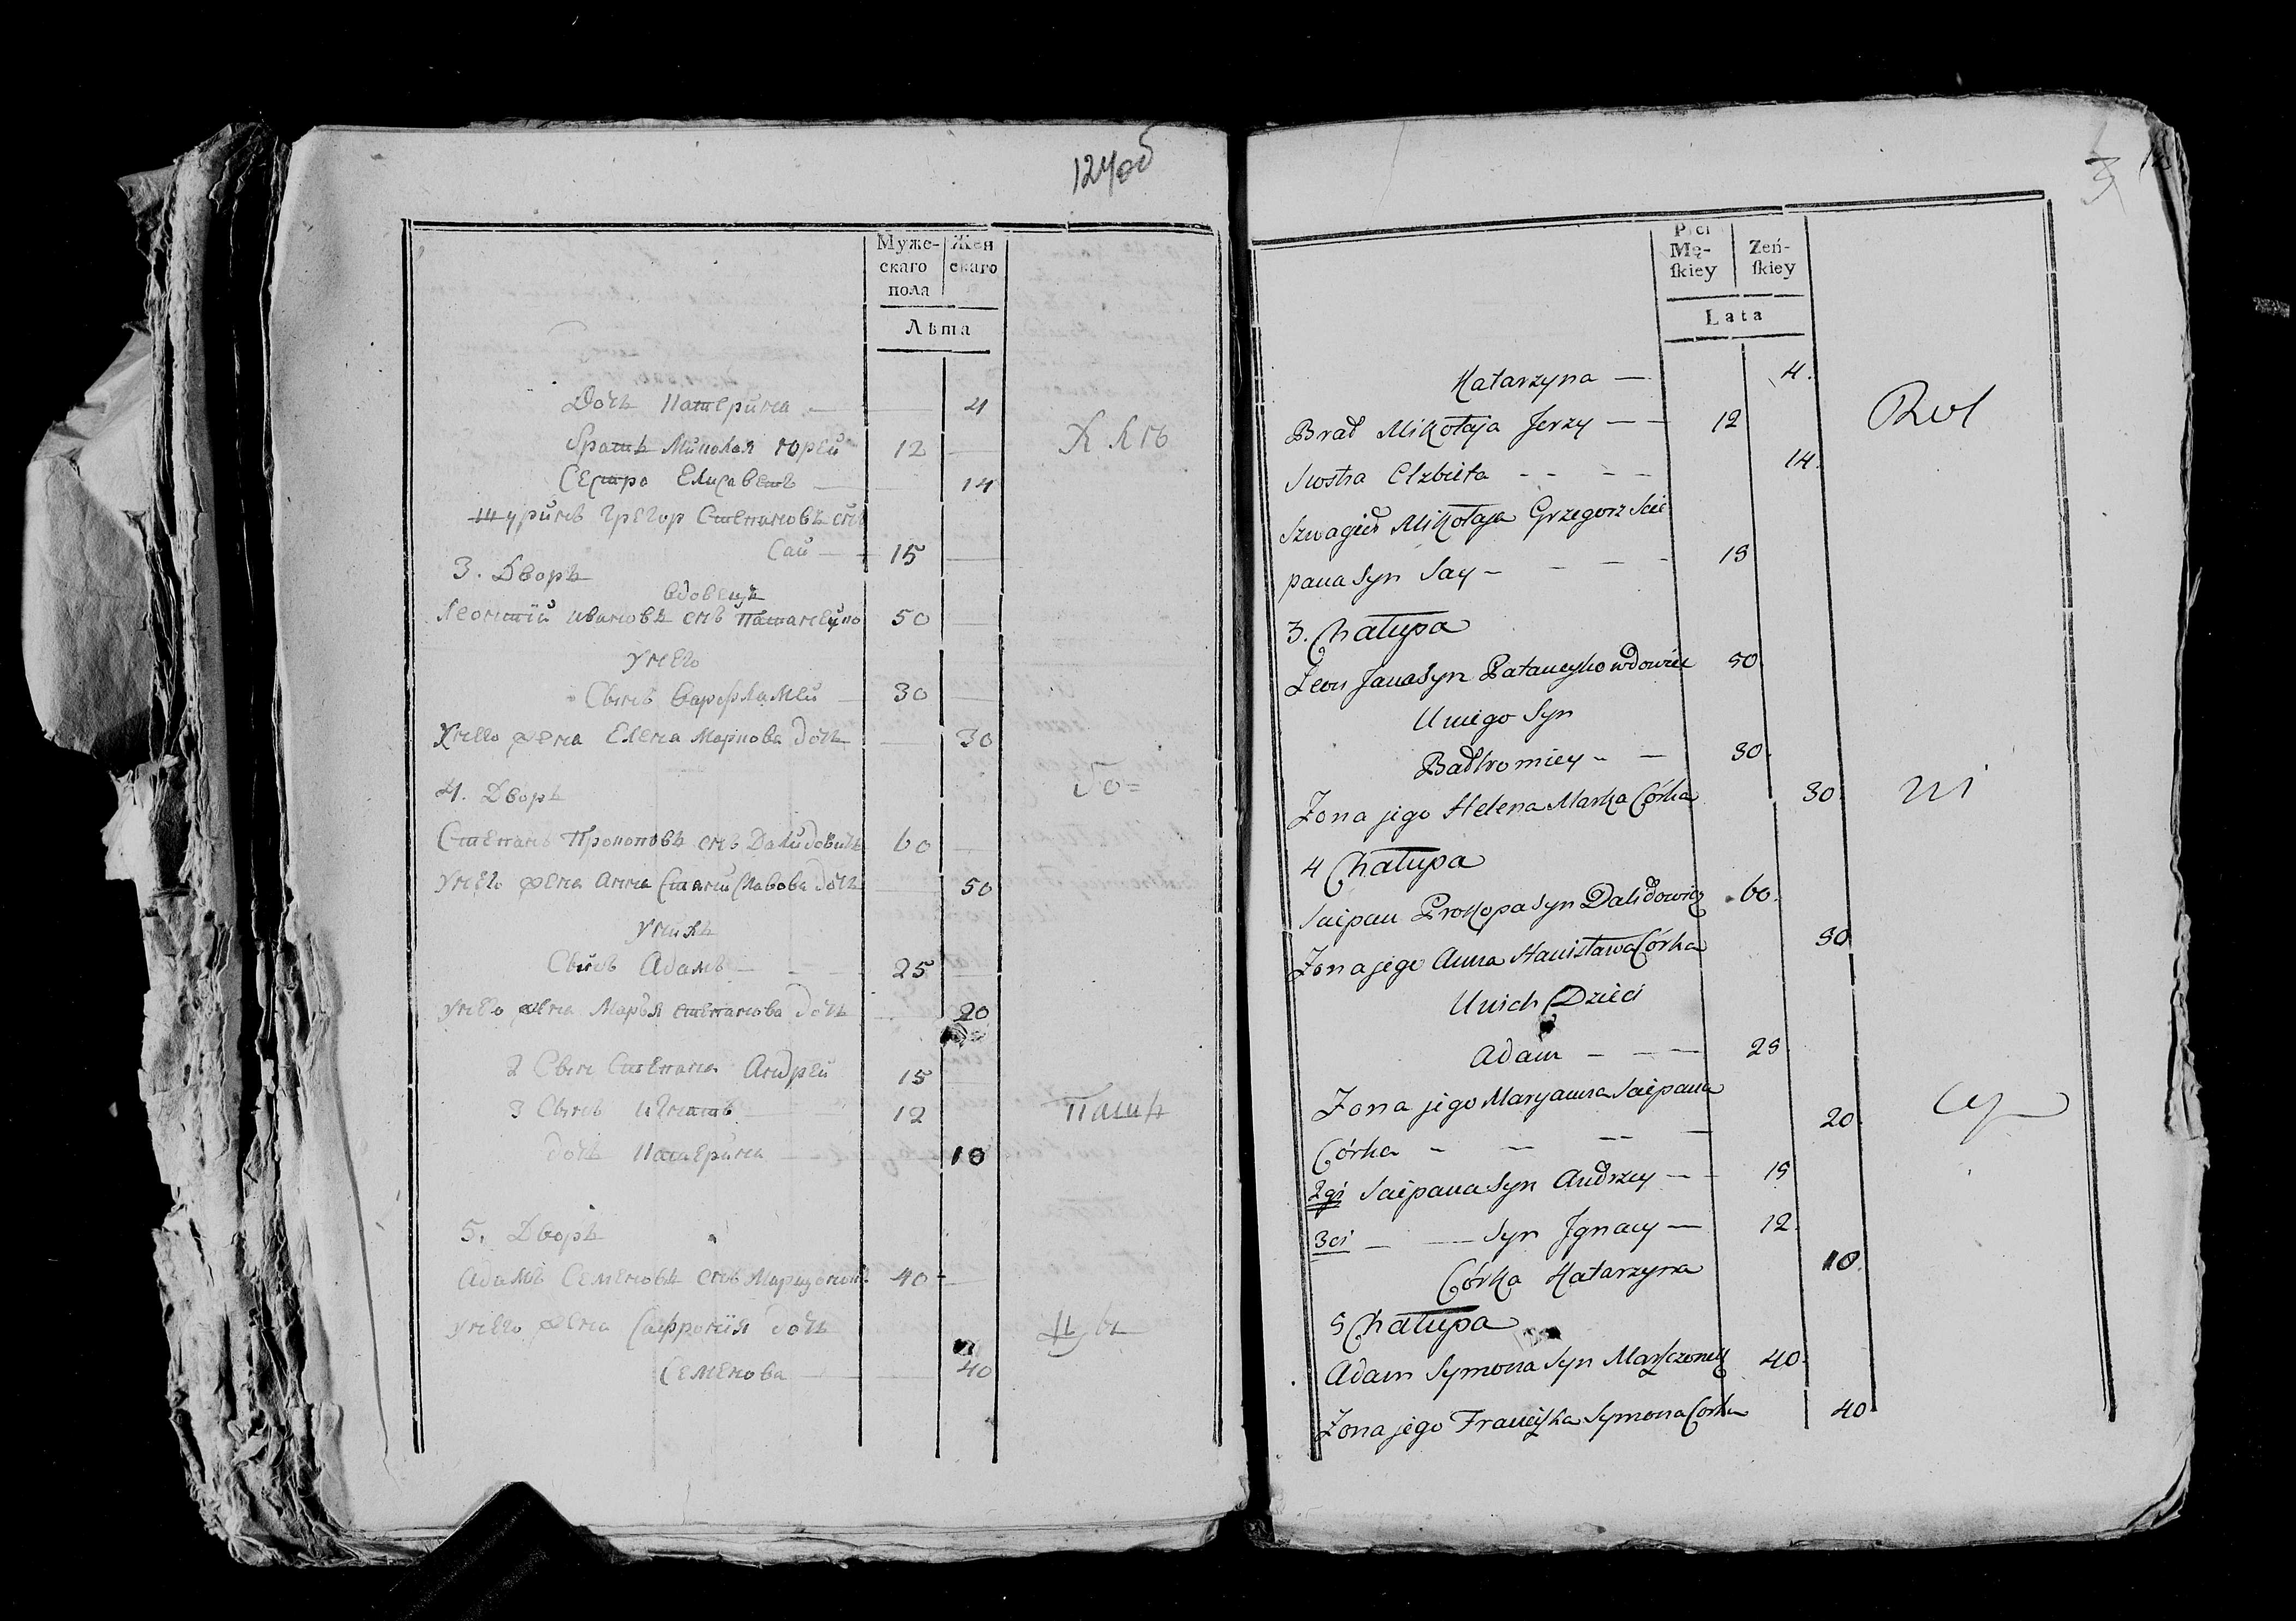 124об
Муже- Жен
скаго скаго
пола
Лѣта
Дочь Катерина — 4
братъ Миколая Юрей 12 —
Сестра Елисаветъ — 14
шуринъ Грегор Степановъ снъ
Сай — 15 —
3. Дворъ
вдовецъ
Леонтїй Ивановъ снъ 50 —
У него
Сынъ Варфламей — 30 —
У него жена Елена Маркова дочь — 30
4. Дворъ
Степанъ Прокоповъ снъ Далидовичъ 60 —
У него жена Анна Станиславова дочь 50
У нихъ
Сынъ Адамъ — 25 —
У него жена Марья Степанова дочь — 20
2 Сынъ Степана Андрей 15 —
3 Сынъ Игнатъ — 12
дочь Катерина — 10
5. Дворъ
Адамъ Семеновъ снъ 40 —
У него жена Софронїя дочь
Семенова — 40
Паш
3
Płci
Mę- Zeń-
ſkiey ſkiey
Lata
Katarzyna — 4.
Brat Mikołaja Jerzy — — 12
Siostra Elzbieta - - - - 14.
Szwagier Mikołaja Grzegorz Scie
pana Syn Say - - - - 15
3. Chałupa
Leon Jana Syn Pataueyko wdowiec 50.
U niego Syn
Bartłomiey - — 30.
Zona jego Helena Marka Córka 30.
4 Chałupa
Sciepan Prokopa Syn Dalidowicz 60.
Zona jego Anna Stanisława Córka 50
U nich Dzieci
Adam - — — 25
Zona jego Maryanna Sciepana
Córka - — — — 20.
2gi Sciepana Syn Andrzey — - 15
3ci — — Syn Jgnacy — 12.
Córka Katarzyna 10.
5 Chałupa
Adam Symona Syn 40.
Zona jego Franciszka Symona Córka 40.
Rol
ni
cy